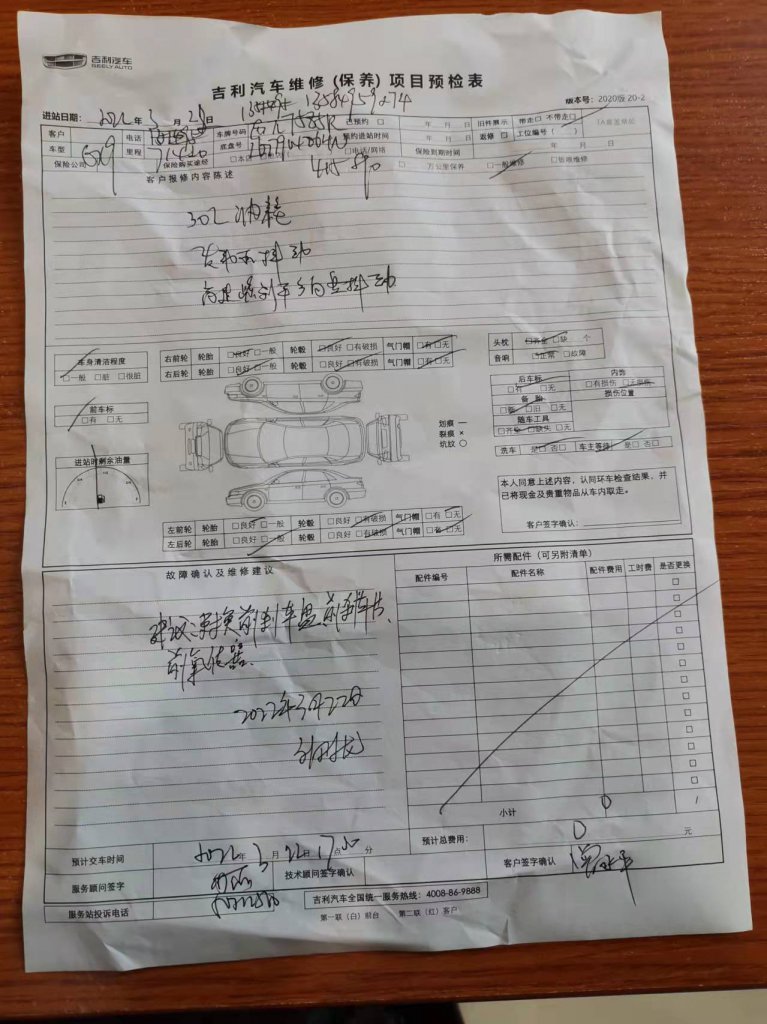 吉利汽车
GEELY AUTO
吉利汽车维修(保养)项目预检表
版本号:2020版 20-2
进站日期: 2022 年 3 月 日 13584959274
客户 电话 车牌号码 已预约 □ 年 月 日 旧件展示 带走□ 不带走□
车型 里程 底盘号 预约进站时间 年 月 日 返修 □ 上位编号( )
保险公司 保险购买途径 □本店 □电话/网络 保险到期时间 年 月 日
万公里保养 □一般维修 □钣喷维修
客户报修内容陈述
30L油耗
发动机抖动
高速踩刹车方向盘抖动
车身清洁程度
□一般 □脏 □很脏
右前轮 轮胎 □良好 □一般 轮毂 □良好 □有破损 气门帽 □有 □无
右后轮 轮胎 □良好 □一般 轮毂 □良好 □有破损 气门帽 □有 □无
头枕 □齐全 □缺 个
音响 □正常 □故障
前车标
□有 □无
后车标
□有 □无
备胎
□新 □旧 □无
随车工具
□齐全 □缺失 □无
内饰
□有损伤 □无损伤
损伤位置
划痕 —
裂痕 ×
坑纹 ○
洗车 是□ 否□ 车主等待 是□ 否□
进站时剩余油量
本人同意上述内容,认同环车检查结果,并
已将现金及贵重物品从车内取走。
客户签字确认:
左前轮 轮胎 □良好 □一般 轮毂 □良好 □有破损 气门帽 □有 □无
左后轮 轮胎 □良好 □一般 轮毂 □良好 □有破损 气门帽 □有 □无
故障确认及维修建议
建议更换前刹车盘、前刹车片、
前氧传感器.
2022年3月22日
所需配件(可另附清单)
配件编号 配件名称 配件费用 工时费 是否更换
小计 0 /
预计总费用: 0 元
预计交车时间 2022年 3 月 22日 17点 分
服务顾问签字 技术顾问签字确认 客户签字确认
服务站投诉电话
吉利汽车全国统一服务热线:4008-86-9888
第一联(白)前台 第二联(红)客户